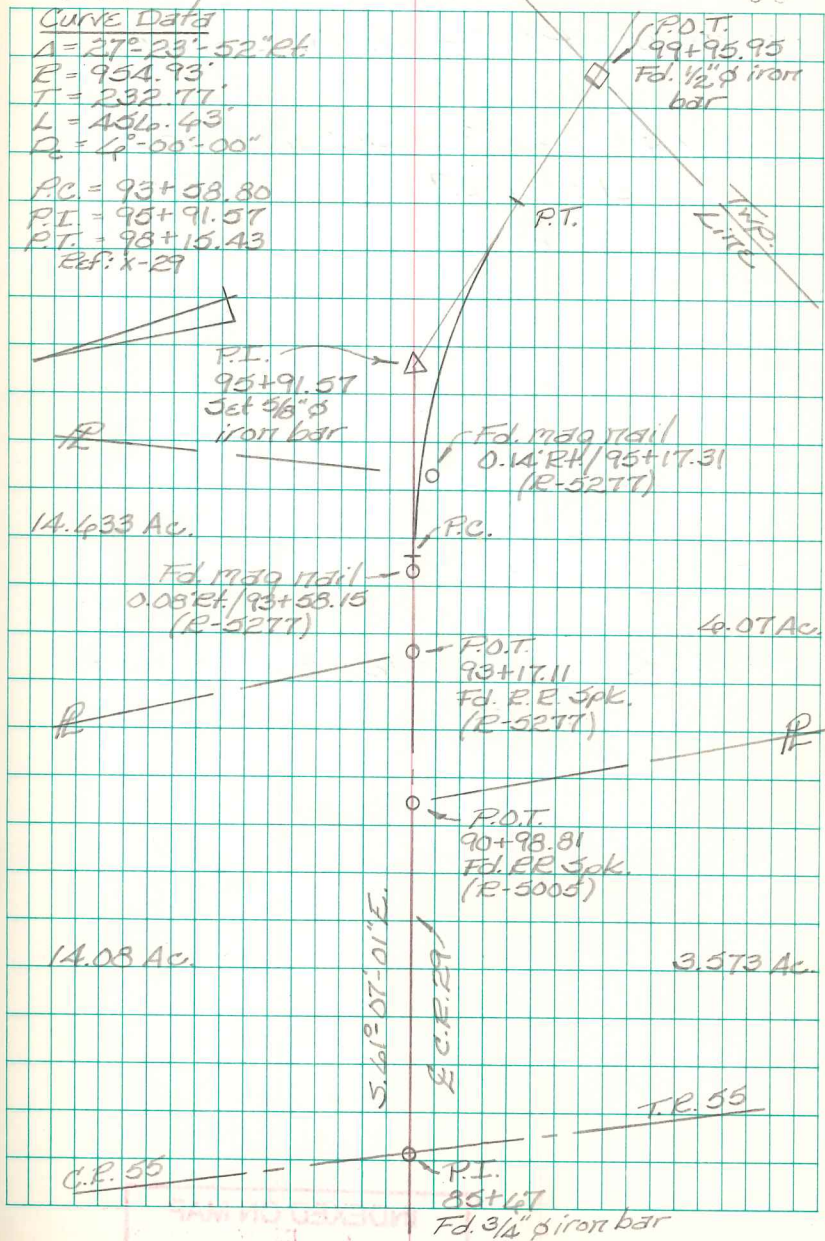 Curve Data
Δ = 27°-23'-52" Rt.
R = 954.93'
T = 232.77'
L = 456.63'
Dc = 6°-00'-00"
P.C. = 93+58.80
P.I. = 95+91.57
P.T. = 98+15.43
Ref: X-29
P.O.T.
99+95.95
Fd. 1/2" ø iron
bar
Twp.
Line
P.T.
P.I.
95+91.57
Set 5/8" ø
iron bar
PL
Fd. mag nail
0.14' Rt./95+17.31
(R-5277)
14.633 Ac.
P.C.
Fd. mag nail
0.08' Rt./93+58.15
(R-5277)
6.07 Ac.
P.O.T.
93+17.11
Fd. R.R. Spk.
(R-5277)
PL
PL
P.O.T.
90+98.81
Fd. RR Spk.
(R-5005)
14.08 Ac.
3.573 Ac.
S.61°-07'-01"E.
℄ C.R. 29
T.R. 55
C.R. 55
P.I.
85+67
Fd. 3/4" ø iron bar